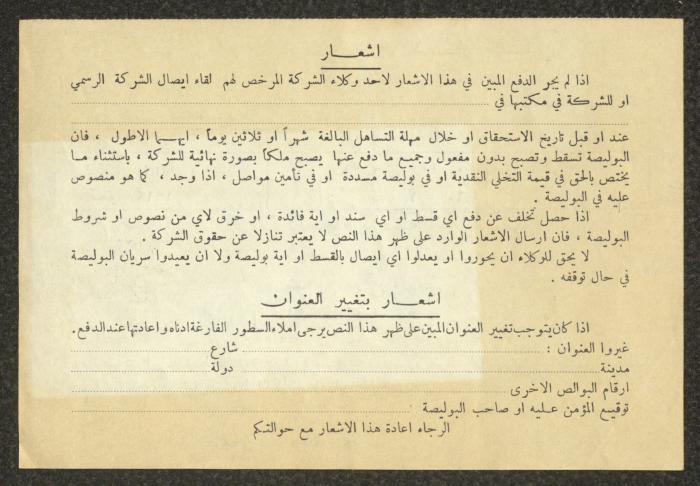 اشعـار
اذا لم يجر الدفع المبين في هذا الاشعار لاحد وكلاء الشركة المرخص لهم لقاء ايصال الشركة الرسمي
او للشركة في مكتبها في
عند او قبل تاريخ الاستحقاق او خلال مهلة التساهل البالغة شهراً او ثلاثين يوماً ، ايهـما الاطول ، فان
البوليصة تسقط وتصبح بدون مفعول وجميع ما دفع عنها يصبح ملكاً بصورة نهائية للشركة ، باستثناء مـا
يختص بالحق في قيمة التخلي النقدية او في بوليصة مسددة او في تأمين مواصل ، اذا وجد ، كما هو منصوص
عليه في البوليصة .
اذا حصل تخلف عن دفع اي قسط او اي سند او اية فائدة ، او خرق لاي من نصوص او شروط
البوليصة ، فان ارسال الاشعار الوارد على ظهر هذا النص لا يعتبر تنازلا عن حقوق الشركة .
لا يحق للوكلاء ان يحوروا او يعدلوا اي ايصال بالقسط او اية بوليصة ولا ان يعيدوا سريان البوليصة
في حال توقفه .
اشعـار بتغيير العنـوان
اذا كان يتوجب تغيير العنوان المبين على ظهر هذا النص يرجى املاء السطور الفارغة ادناه واعادتها عند الدفع .
غيروا العنوان : شارع
مدينة دولة
ارقام البوالص الاخرى
توقيع المؤمن عـليه او صاحب البوليصة
الرجاء اعادة هذا الاشعار مع حوالتـكم